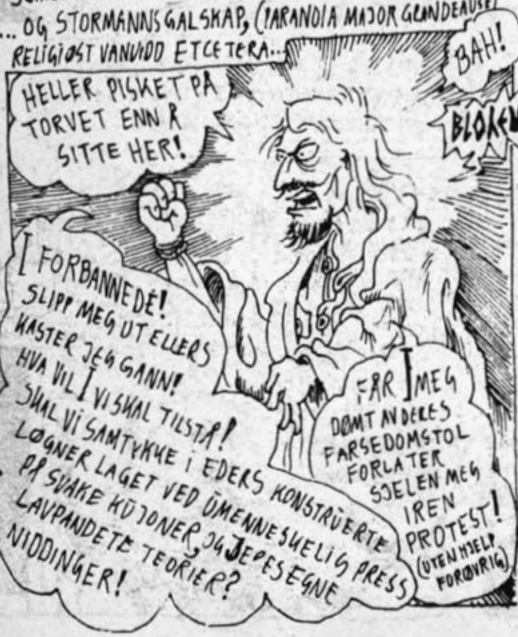 ... OG STORMANNSGALSKAP, (PARANOIA MAJOR GLANDEAUSE)
RELIGIØST VANVIDD ETCETERA...
HELLER PISKET PÅ
TORVET ENN Å
SITTE HER!
BAH!
I FORBANNEDE!
SLIPP MEG UT ELLERS
KASTER JEG GANN!
HVA VIL I VI SKAL TILSTÅ?
SKAL VI SAMTYKKE I EDERS KONSTRUERTE
LØGNER LAGET VED UMENNESKELIG PRESS
PÅ SVAKE KUJONER, OG JEPESEGNE
LAVPANDETE TEORIER?
NIDDINGER!
FÅR I MEG
DØMT AV DERES
FARSEDOMSTOL
FORLATER
SJELEN MEG
I REN
PROTEST!
(UTEN HJELP
FORØVRIG)